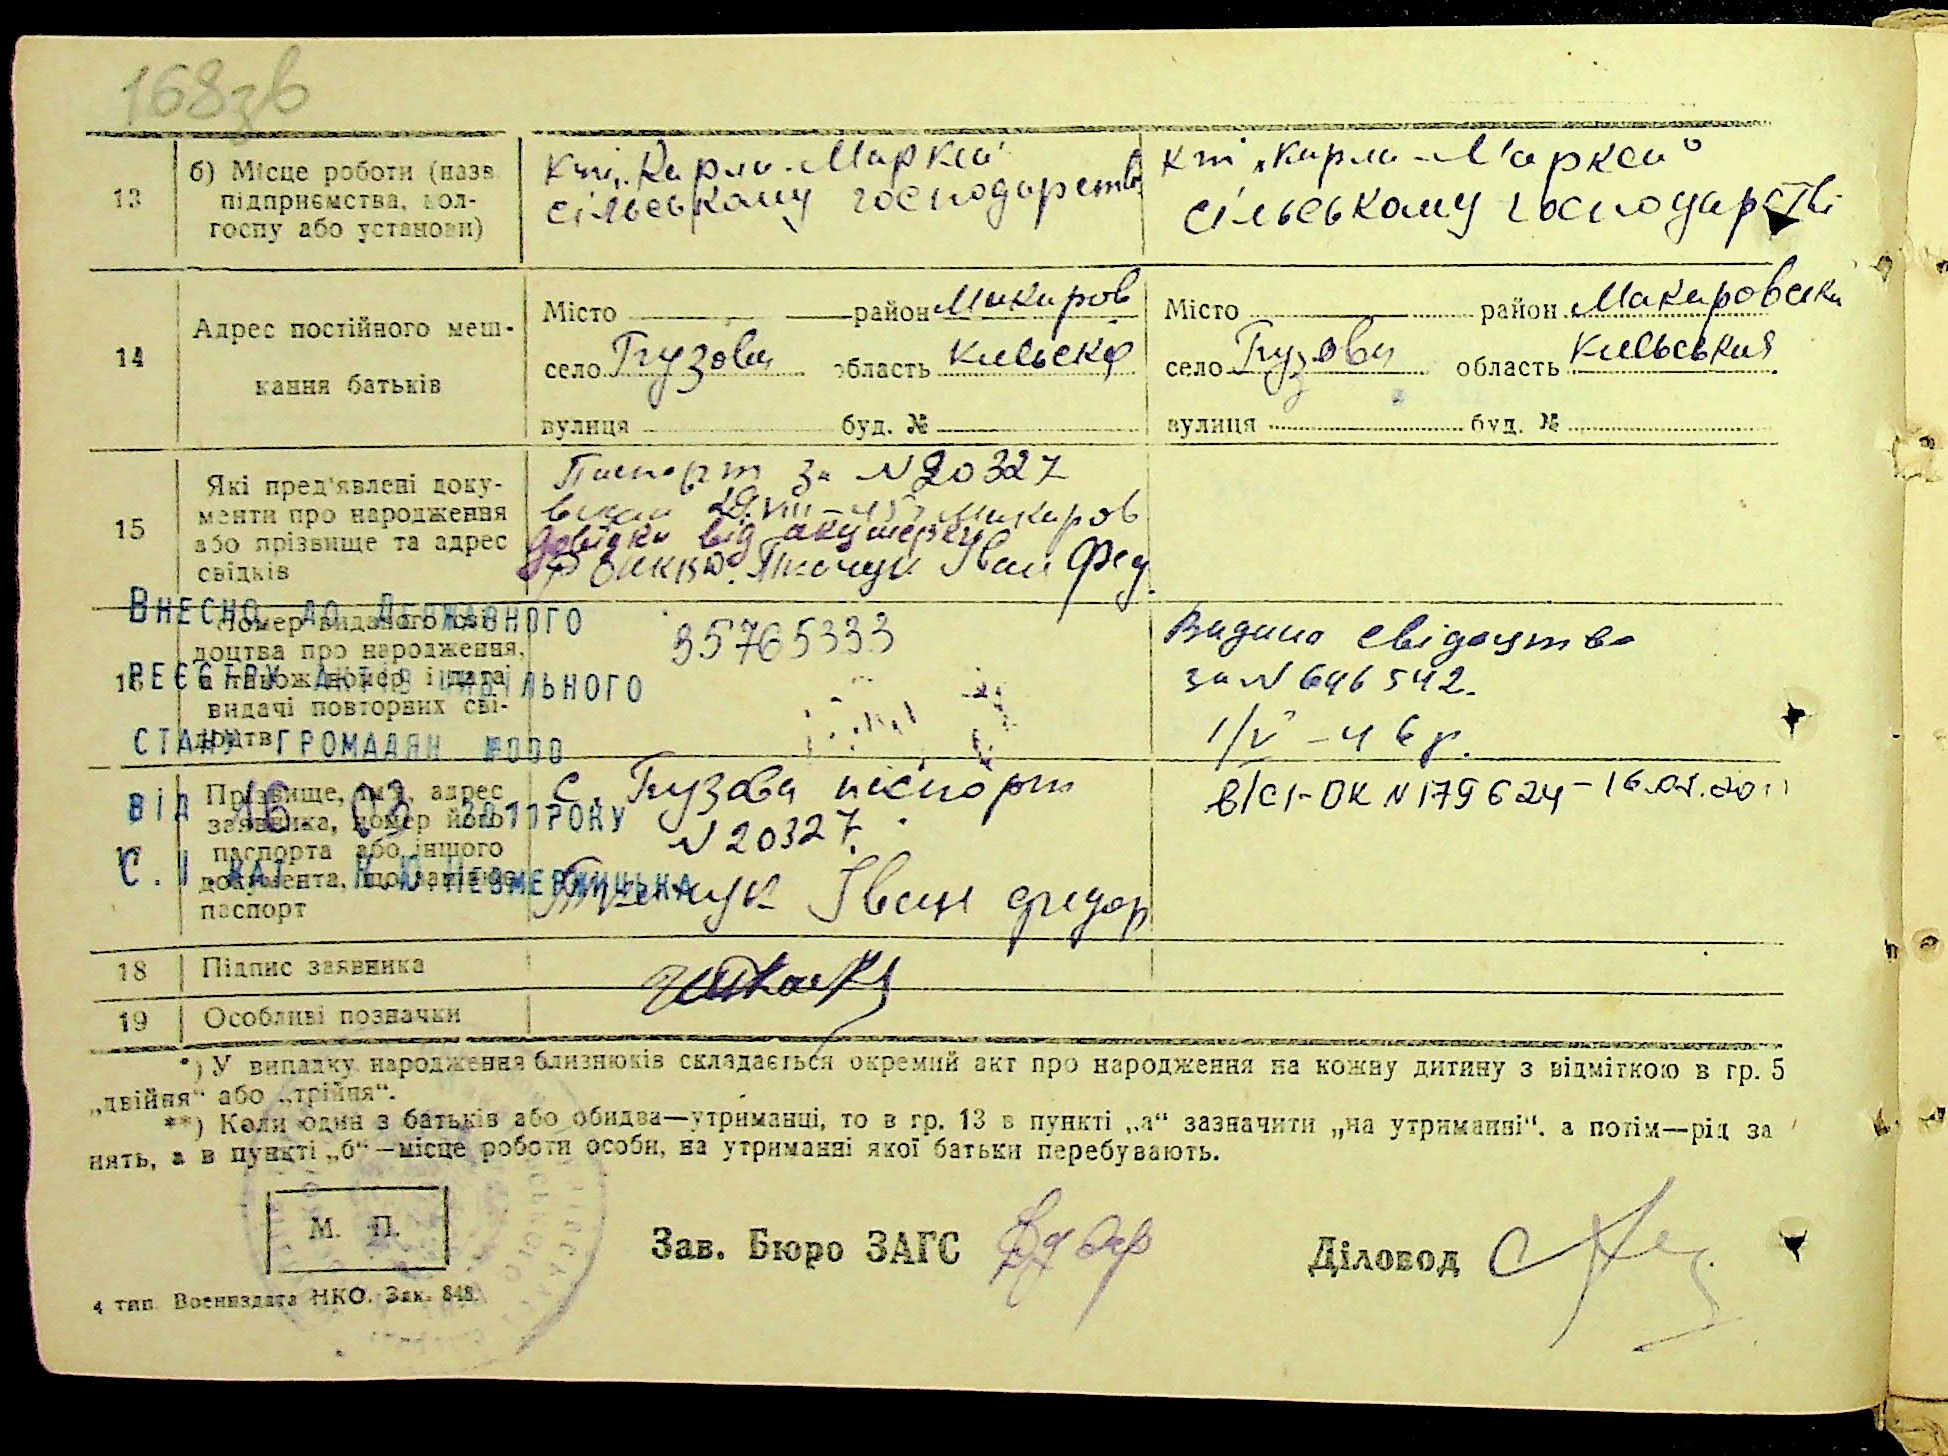 168зв
13
б) Місце роботи (назв.
підприємства, кол-
госпу або установи)
кт „Карла-Маркса"
сільському господарстві
кт „Карла-Маркса"
сільському господарстві
14
Адрес постійного меш-
кання батьків
Місто район Макаров
село Грузьки область Київська
вулиця буд. №
Місто район Макаровски
село область Київський
вулиця буд. №
15
Які пред'явлені доку-
менти про народження
або прізвище та адрес
свідків
Паспорт за N 20327
29.VIII-45 Макаров
довідка від акушерки
Ткачук Іван Фед.
16
Номер виданого сві-
доцтва про народження,
а також номер і дата
видачі повторних сві-
доцтв
35765333
Видано свідоцтво
за N 646542.
1/V-46 р.
17
Прізвище, ім'я, адрес
заявника, номер його
паспорта або іншого
документа, що заміняє
паспорт
с. паспорт
N 20327.
Ткачук Іван Федор
в/с I-ОК N 179624-16.03.2011
Внесно до Державного
реєстру актів цивільного
стану громадян №000
від 16.03 2011 року
С.І.кат. Незмержицька
18
Підпис заявника
19
Особливі позначки
*) У випадку народження близнюків складається окремий акт про народження на кожну дитину з відміткою в гр. 5
„двійня" або „трійня".
**) Коли один з батьків або обидва—утриманці, то в гр. 13 в пункті „а" зазначити „на утриманні", а потім—рід за
нять, а в пункті „б"—місце роботи особи, на утриманні якої батьки перебувають.
М. П.
Зав. Бюро ЗАГС
Діловод
4 тип. Воениздата НКО. Зак. 848.